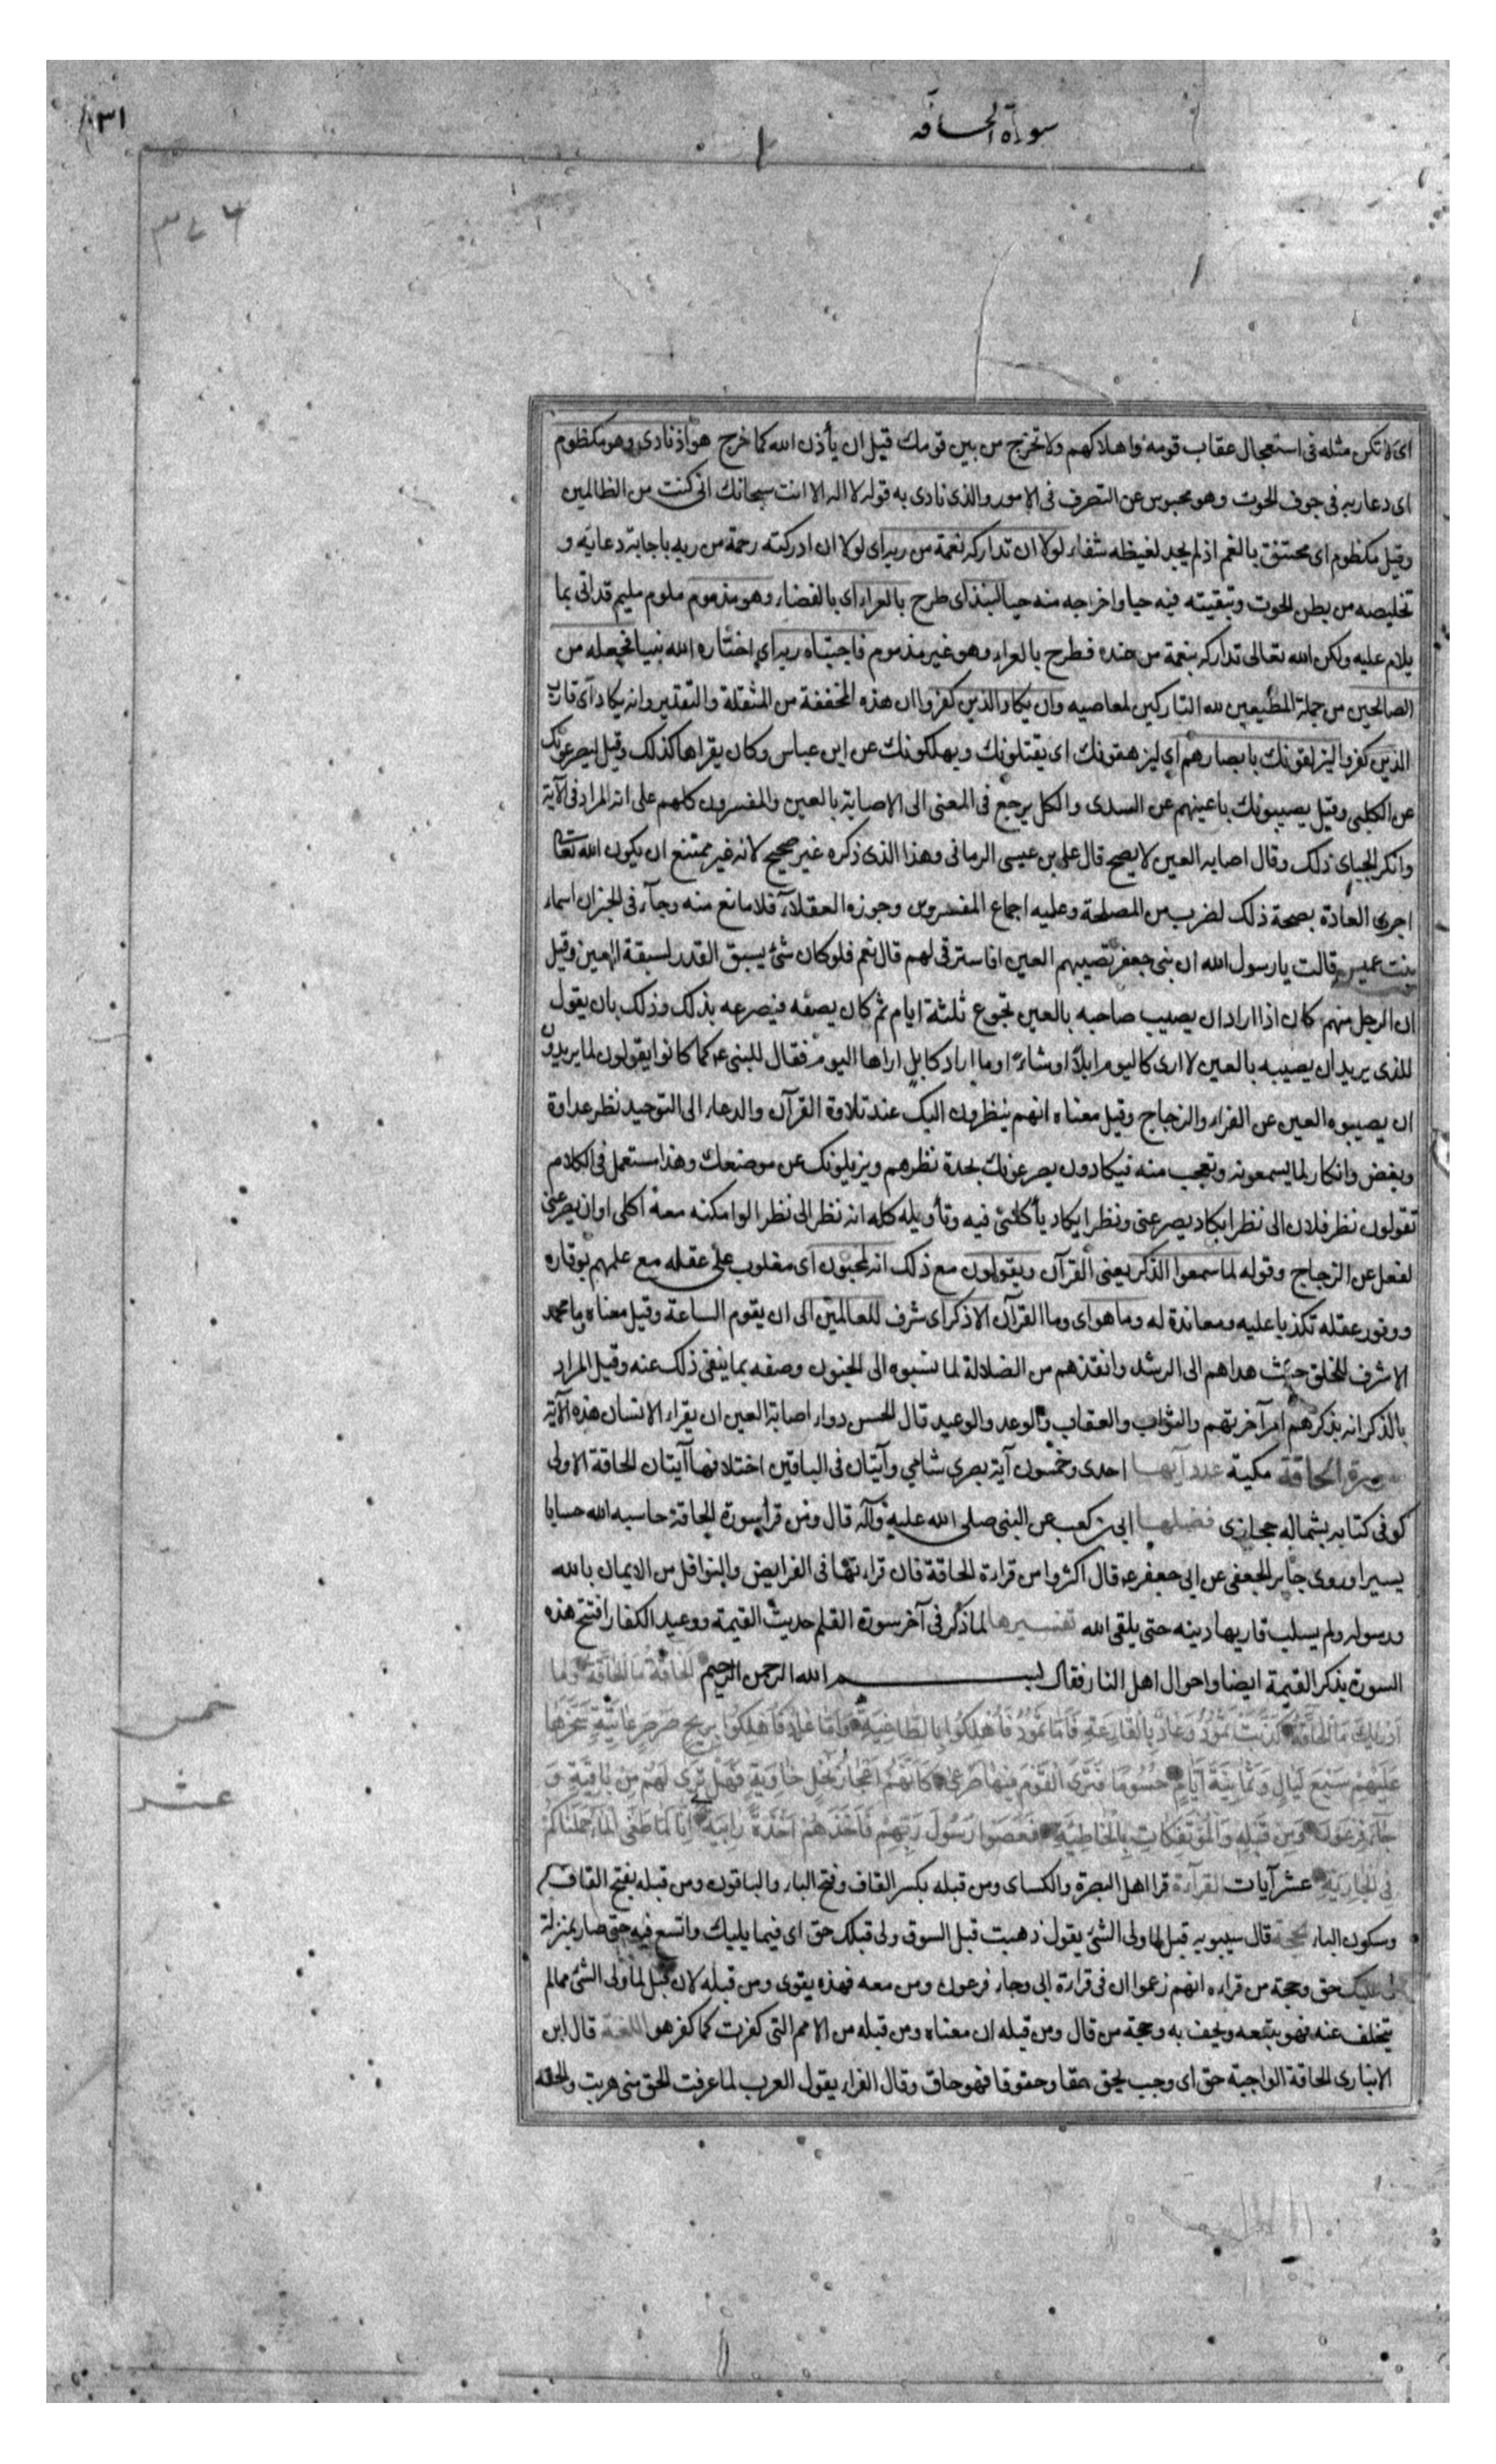 سورة الحاقه
٣١
٣٧٦
اى لا تكن مثله فى استعجال عقاب قومه واهلاكهم ولا تخرج من بين قومك قبل ان يأذن الله كما خرج هو اذ نادى وهو مكظوم
اى دعا ربه فى جوف الحوت وهو محبوس عن التصرف فى الامور والذى نادى به قوله لا اله الا انت سبحانك انى كنت من الظالمين
وقيل مكظوم اى مختنق بالغم اذ لم يجد لغيظه شفاء لولا ان تداركه نعمة من ربه اى لولا ان ادركته رحمة من ربه باجابة دعائه و
تخليصه من بطن الحوت وتبقيته فيه حيا واخراجه منه حيا لنبذ اى طرح بالعراء اى بالفضاء وهو مذموم ملوم مليم قد اتى بما
يلام عليه ولكن الله تعالى تداركه بنعمة من عنده فطرح بالعراء وهو غير مذموم فاجتباه ربه اى اختاره الله نبيا فجعله من
الصالحين من جملة المطيعين لله التاركين لمعاصيه وان يكاد الذين كفروا ان هذه المخففة من المثقلة والتقدير وانه يكاد اى قارب
الذين كفروا ليزلقونك بابصارهم اى ليزهقونك اى يقتلونك ويهلكونك عن ابن عباس وكان يقراها كذلك وقيل ليصرعونك
عن الكلبى وقيل يصيبونك باعينهم عن السدى والكل يرجع فى المعنى الى الاصابة بالعين والمفسرون كلهم على انه المراد فى الآية
وانكر الجبائى ذلك وقال اصابه العين لا يصح قال على بن عيسى الرمانى وهذا الذى ذكره غير صحيح لانه غير ممتنع ان يكون الله تعالى
اجرى العادة بصحة ذلك لضرب من المصلحة وعليه اجماع المفسرين وجوزه العقلاء فلا مانع منه وجاء فى الخبر ان اسماء
بنت عميس قالت يا رسول الله ان بنى جعفر تصيبهم العين افاسترقى لهم قال نعم فلو كان شئ يسبق القدر لسبقة العين وقيل
ان الرجل منهم كان اذا اراد ان يصيب صاحبه بالعين تجوع ثلثة ايام ثم كان يصفه فيصرعه بذلك وذلك بان يقول
للذى يريد ان يصيبه بالعين لا ارى كاليوم ابلا او شاء او ما اراد كابل اراها اليوم فقال للنبى ع كما كانوا يقولون لما يريدون
ان يصيبوه العين عن الفراء والزجاج وقيل معناه انهم ينظرون اليك عند تلاوة القرآن والدعاء الى التوحيد نظر عداوة
وبغض وانكار لما يسمعونه وتعجب منه فيكادون يصرعونك بحدة نظرهم ويزيلونك عن موضعك وهذا مستعمل فى الكلام
تقولون نظر فلان الى نظرا يكاد يصرعنى ونظرا يكاد يأكلنى فيه وتأويله كله انه نظر الى نظرا لو امكنه معه اكلى او ان يصرعنى
لفعل عن الزجاج وقوله لما سمعوا الذكر يعنى القرآن ويقولون مع ذلك انه لمجنون اى مغلوب على عقله مع علمهم بوقاره
ووفور عقله تكذيبا عليه ومعاندة له وما هو اى وما القرآن الا ذكر اى شرف للعالمين الى ان يقوم الساعة وقيل معناه وما محمد
الا شرف للخلق حيث هداهم الى الرشد وانقذهم من الضلالة لما نسبوه الى الجنون وصفه بما ينفى ذلك عنه وقيل المراد
بالذكر انه يذكرهم امر آخرتهم والثواب والعقاب والوعد والوعيد قال الحسن دواء اصابة العين ان يقراء الانسان هذه الآية
سورة الحاقة مكية عدد آيها احدى وخمسون آية بصري شامي وآيتان فى الباقين اختلافها آيتان الحاقة الاولى
كوفى كتابه بشماله حجازى فضلها ابى بن كعب عن النبى صلى الله عليه وآله قال ومن قرأ سورة الحاقة حاسبه الله حسابا
يسيرا وروى جابر الجعفى عن ابى جعفر ع قال اكثروا من قراءة الحاقة فان قراءتها فى الفرايض والنوافل من الايمان بالله
ورسوله ولم يسلب قاريها دينه حتى يلقى الله تفسيرها لما ذكر فى آخر سورة القلم حديث القيمة ووعيد الكفار افتتح هذه
السورة بذكر القيمة ايضا واحوال اهل النار فقال بسم الله الرحمن الرحيم الحاقة ما الحاقة وما
ادريك ما الحاقة كذبت ثمود وعاد بالقارعة فاما ثمود فاهلكوا بالطاغية واما عاد فاهلكوا بريح صرصر عاتية سخرها
عليهم سبع ليال وثمانية ايام حسوما فترى القوم فيها صرعى كانهم اعجاز نخل خاوية فهل ترى لهم من باقية و
جاء فرعون ومن قبله والمؤتفكات بالخاطية فعصوا رسول ربهم فاخذهم اخذة رابية انا لما طغى الماء حملناكم
فى الجارية عشر آيات القراءة قرا اهل البصرة والكسائى ومن قبله بكسر القاف وفتح الباء والباقون ومن قبله بفتح القاف
وسكون الباء الحجة قال سيبويه قبل لما ولى الشئ يقول ذهبت قبل السوق ولى قبلك حق اى فيما يليك واتسع فيه حتى صار بمنزلة
لى عليك حق وحجة من قراءه انهم زعموا ان فى قراءة ابى وجاء فرعون ومن معه فهذه يقوى ومن قبله لان قبل لما ولى الشئ مما لم
يتخلف عنه فهو يتبعه ويحف به وحجة من قال ومن قبله ان معناه ومن قبله من الامم التى كفرت كما كفر هو اللغة قال ابن
الانبارى الحاقة الواجبة حق اى وجب يحق حقا وحقوقا فهو حاق وقال الفراء يقول العرب لما عرفت الحق منى هربت والحاقه
خمس
عشر